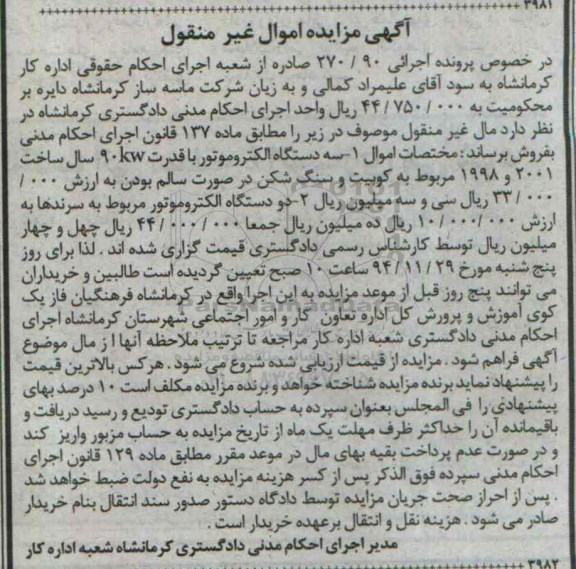 ۳۹۸۱
آگهی مزایده اموال غیر منقول
در خصوص پرونده اجرائی ۹۰ / ۲۷۰ صادره از شعبه اجرای احکام حقوقی اداره کار
کرمانشاه به سود آقای علیمراد کمالی و به زیان شرکت ماسه ساز کرمانشاه دایره بر
محکومیت به ۰۰۰ / ۷۵۰ / ۴۴ ریال واحد اجرای احکام مدنی دادگستری کرمانشاه در
نظر دارد مال غیر منقول موصوف در زیر را مطابق ماده ۱۳۷ قانون اجرای احکام مدنی
بفروش برساند : مختصات اموال ۱-سه دستگاه الکتروموتور با قدرت ۹۰kw سال ساخت
۲۰۰۱ و ۱۹۹۸ مربوط به کوبیت و سنگ شکن در صورت سالم بودن به ارزش ۰۰۰ /
۰۰۰ / ۳۳ ریال سی و سه میلیون ریال ۲-دو دستگاه الکتروموتور مربوط به سرندها به
ارزش ۰۰۰/ ۰۰۰ / ۱۰ ریال ده میلیون ریال جمعا ۰۰۰ / ۰۰۰ / ۴۴ ریال چهل و چهار
میلیون ریال توسط کارشناس رسمی دادگستری قیمت گزاری شده اند . لذا برای روز
پنج شنبه مورخ ۲۹ / ۱۱ / ۹۴ ساعت ۱۰ صبح تعیین گردیده است طالبین و خریداران
می توانند پنج روز قبل از موعد مزایده به این اجرا واقع در کرمانشاه فرهنگیان فاز یک
کوی آموزش و پرورش کل اداره تعاون کار و امور اجتماعی شهرستان کرمانشاه اجرای
احکام مدنی دادگستری شعبه اداره کار مراجعه تا ترتیب ملاحظه آنها ا ز مال موضوع
آگهی فراهم شود . مزایده از قیمت ارزیابی شده شروع می شود . هرکس بالاترین قیمت
را پیشنهاد نماید برنده مزایده شناخته خواهد و برنده مزایده مکلف است ۱۰ درصد بهای
پیشنهادی را فی المجلس بعنوان سپرده به حساب دادگستری تودیع و رسید دریافت و
باقیمانده آن را حداکثر ظرف مهلت یک ماه از تاریخ مزایده به حساب مزبور واریز کند
و در صورت عدم پرداخت بقیه بهای مال در موعد مقرر مطابق ماده ۱۲۹ قانون اجرای
احکام مدنی سپرده فوق الذکر پس از کسر هزینه مزایده به نفع دولت ضبط خواهد شد
. پس از احراز صحت جریان مزایده توسط دادگاه دستور صدور سند انتقال بنام خریدار
صادر می شود . هزینه نقل و انتقال برعهده خریدار است .
مدیر اجرای احکام مدنی دادگستری کرمانشاه شعبه اداره کار
۳۹۸۲